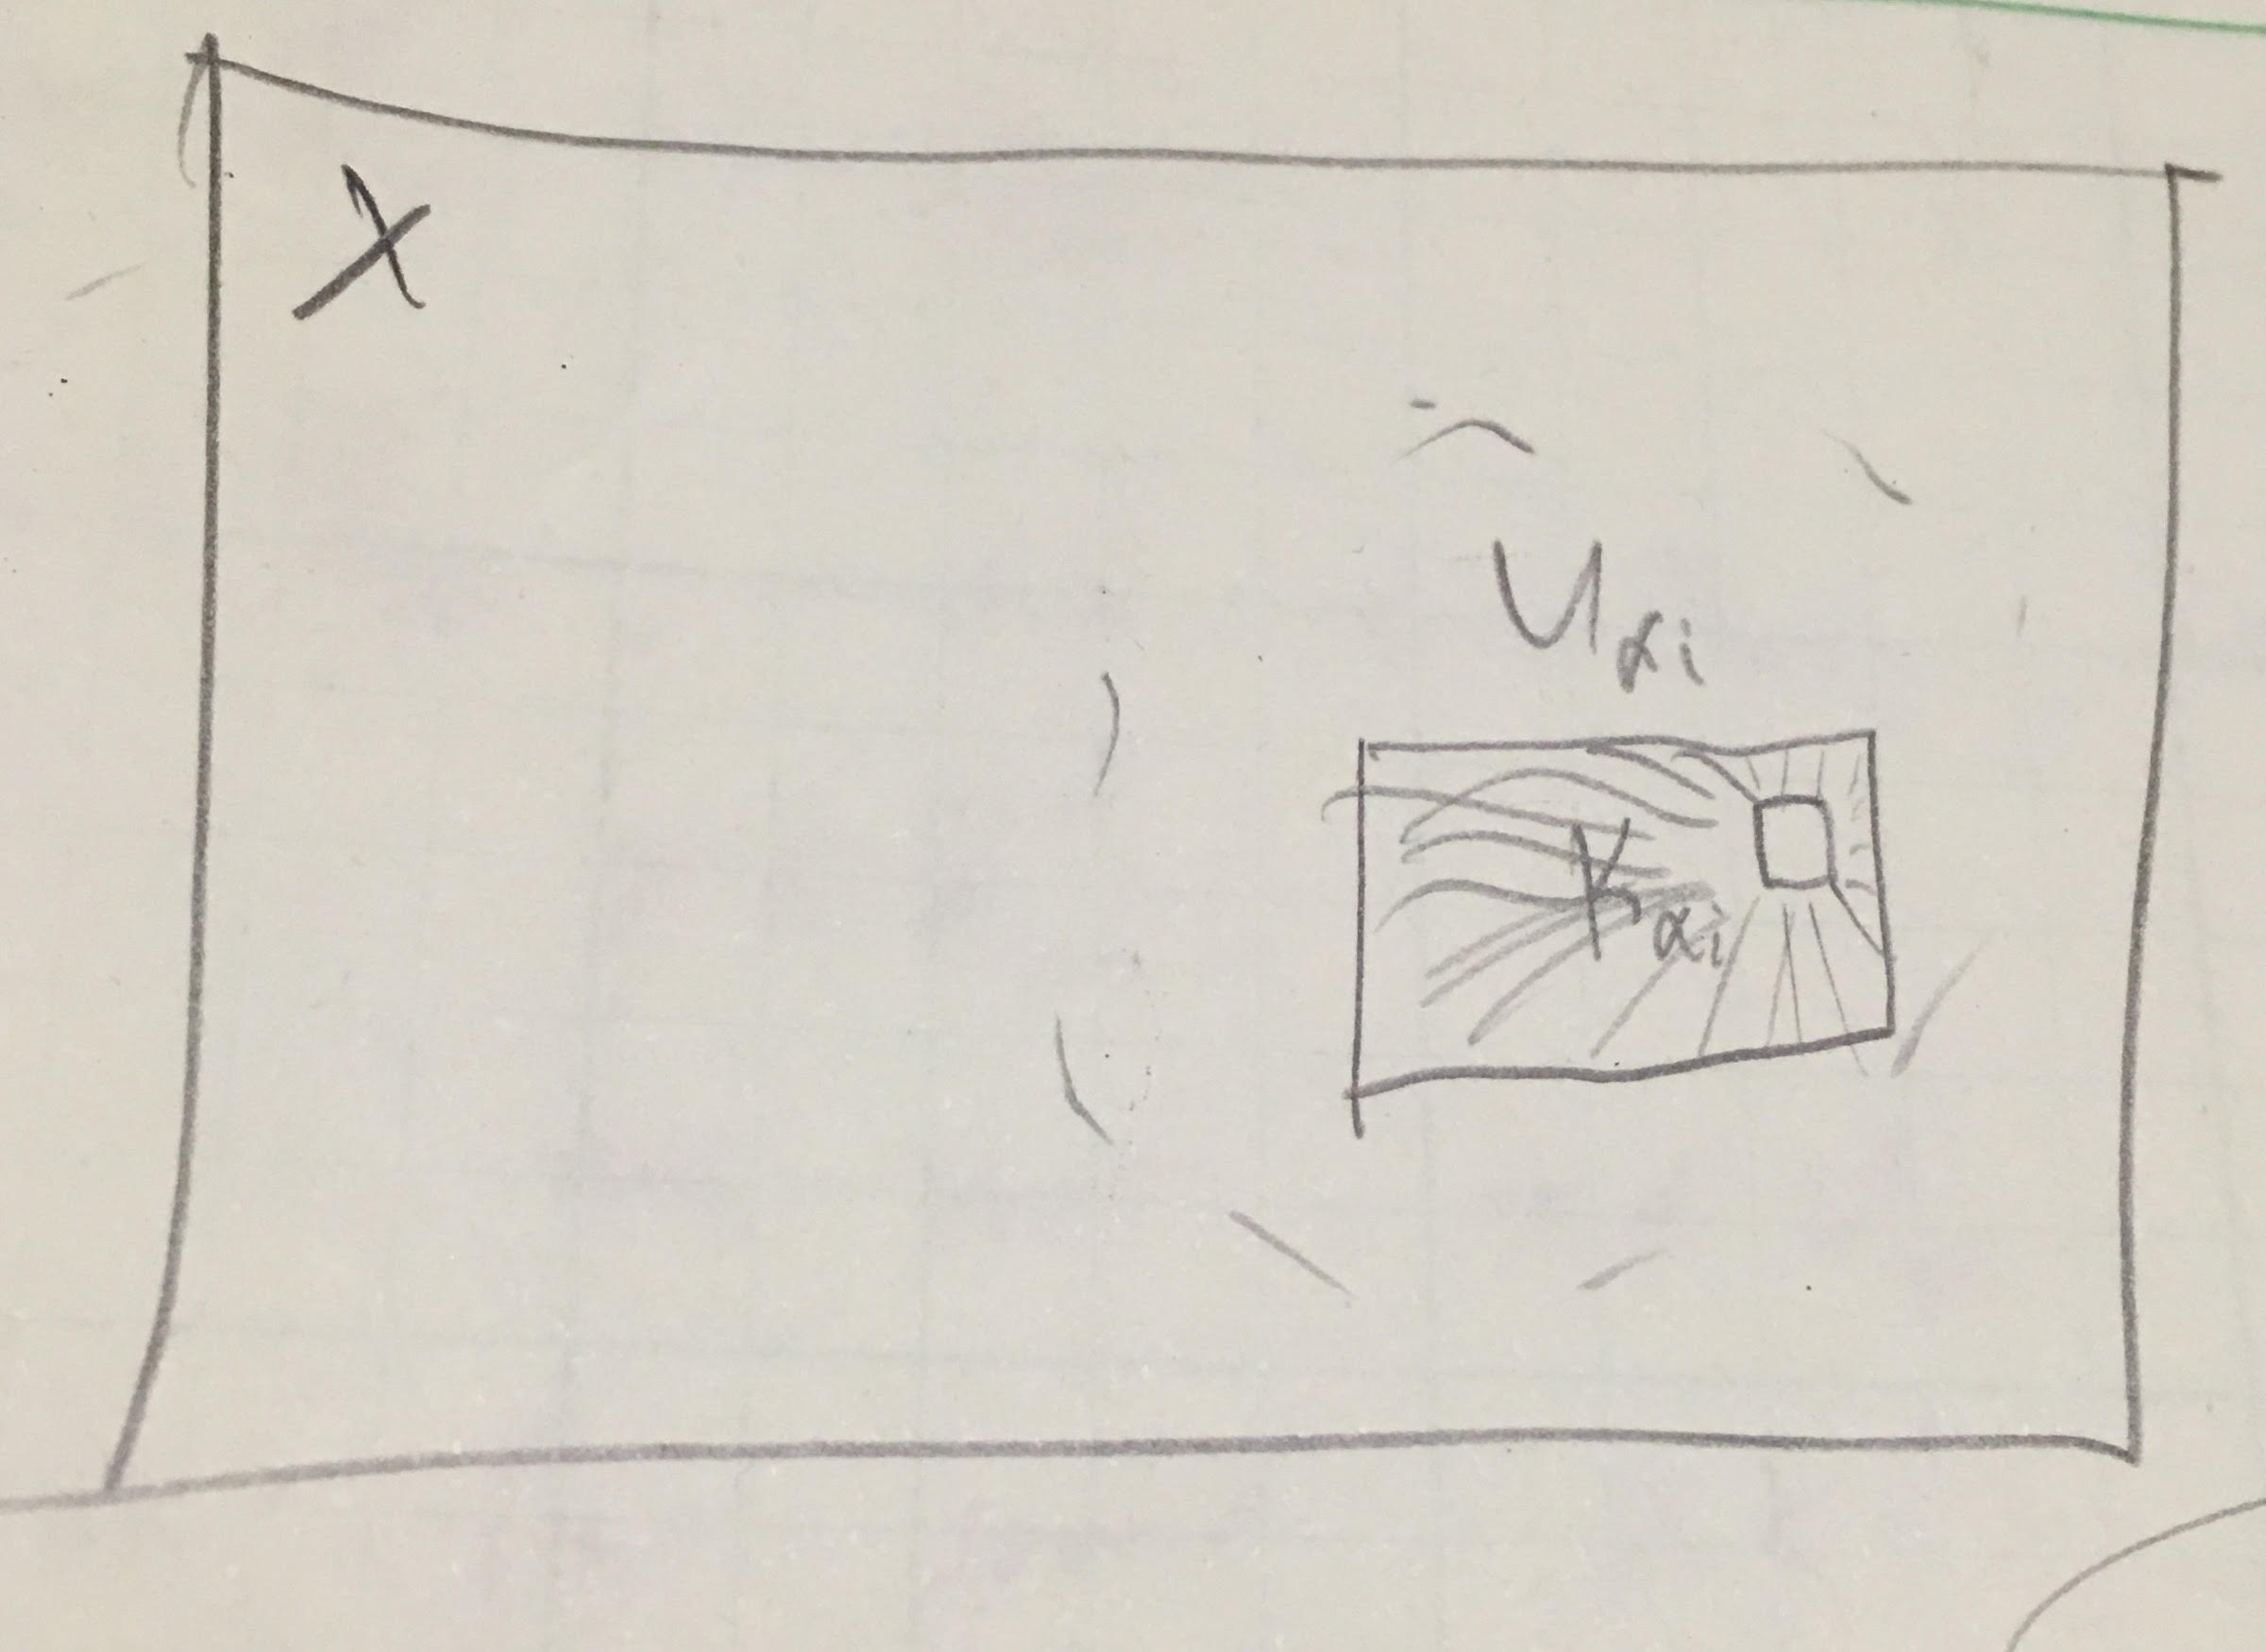 X
U_{αi}
K_{αi}